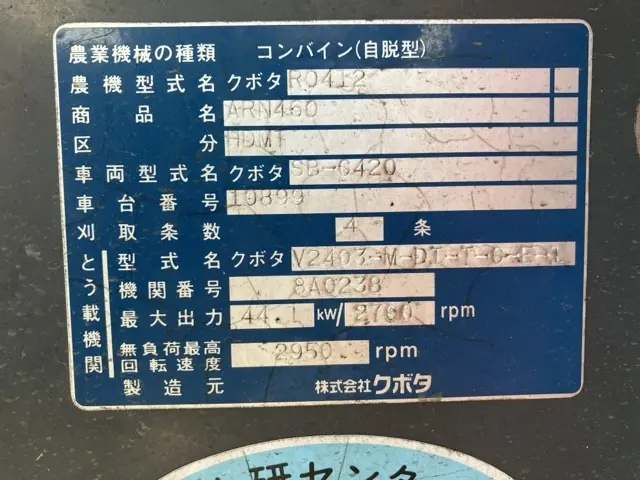 農業機械の種類 コンバイン(自脱型)
農機型式名 クボタ R0412
商品名 ARN460
区分 HDMT
車両型式名 クボタ SB-6420
車台番号 10899
刈取条数 4 条
とう載機関
型式名 クボタ V2403-M-DI-T-C-E-1
機関番号 8A0238
最大出力 44.1 kW/2700 rpm
無負荷最高回転速度 2950 rpm
製造元 株式会社クボタ
研センター